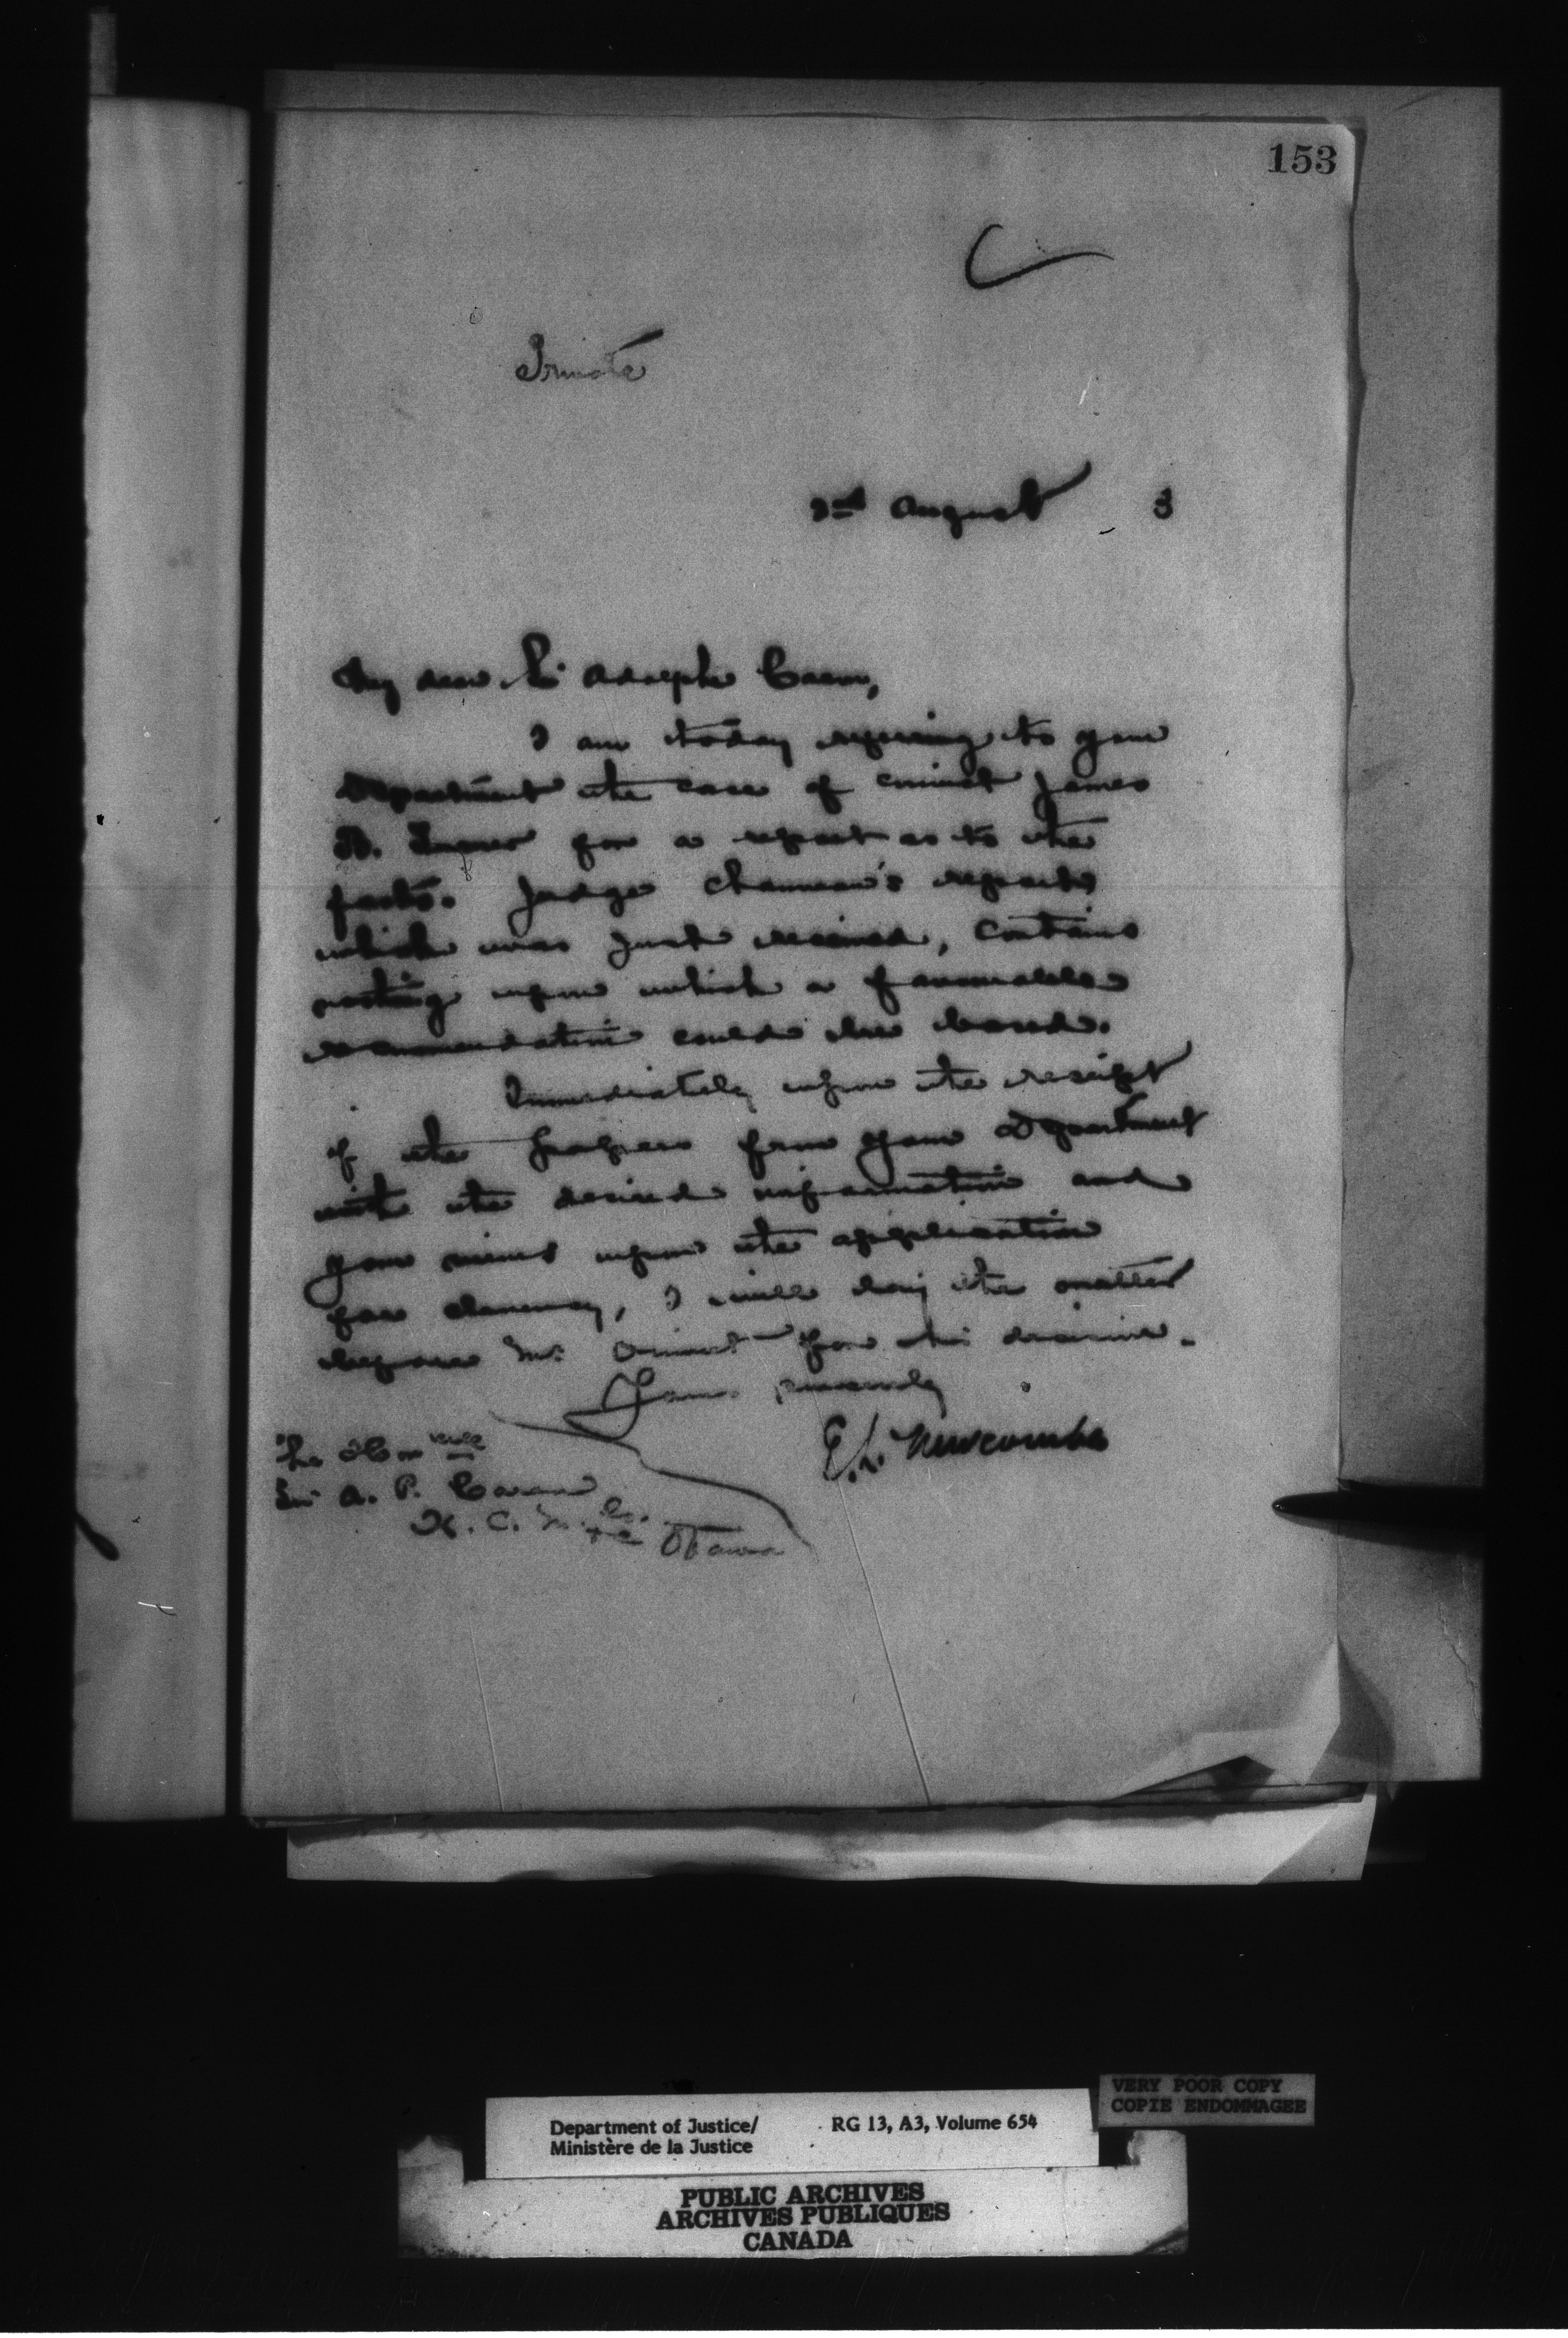 153
Private
2nd August 3
My dear Sir Adolphe Caron,
I am today referring to your
Department the case of convict James
B. for a report as to the
facts. Judge Chauveau's report,
which was just received, contains
nothing upon which a favourable
recommendation could be based.
Immediately upon the receipt
of the papers from your Department
with the desired information and
your views upon the application
for clemency, I will lay the matter
before Mr. Ouimet for his decision.
Yours sincerely
E.L. Newcombe
The Honble
Sir A. P. Caron
K. C. M. G.
Ottawa
VERY POOR COPY
COPIE ENDOMMAGEE
Department of Justice/ RG 13, A3, Volume 654
Ministère de la Justice
PUBLIC ARCHIVES
ARCHIVES PUBLIQUES
CANADA